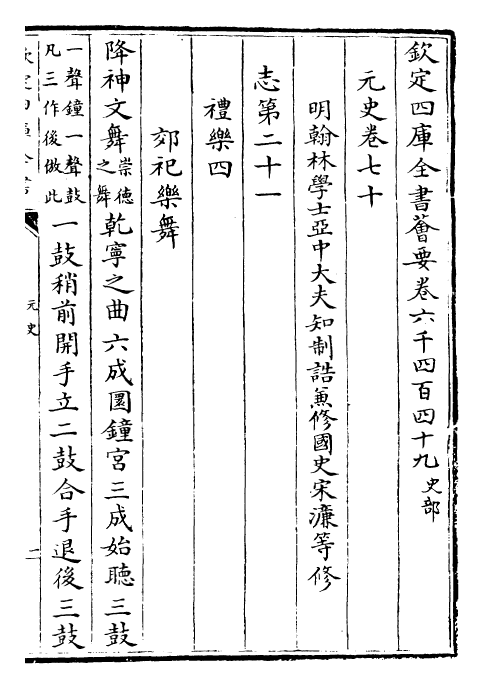 欽定四庫全書薈要卷六千四百四十九 史部
元史卷七十
明翰林學士亞中大夫知制誥兼修國史宋濂等修
志第二十一
禮樂四
郊祀樂舞
降神文舞崇德之舞乾寧之曲六成圜鐘宮三成始聽三鼓
一聲鐘一聲鼓凡三作後倣此一鼓稍前開手立二鼓合手退後三鼓
元史